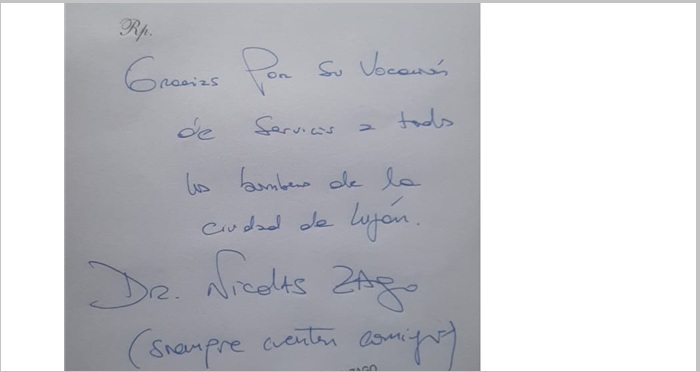 Rp.
Gracias Por su Vocación
de servicio a todos
los bomberos de la
ciudad de Luján.
Dr. Nicolas Zago
(siempre cuenten conmigo)